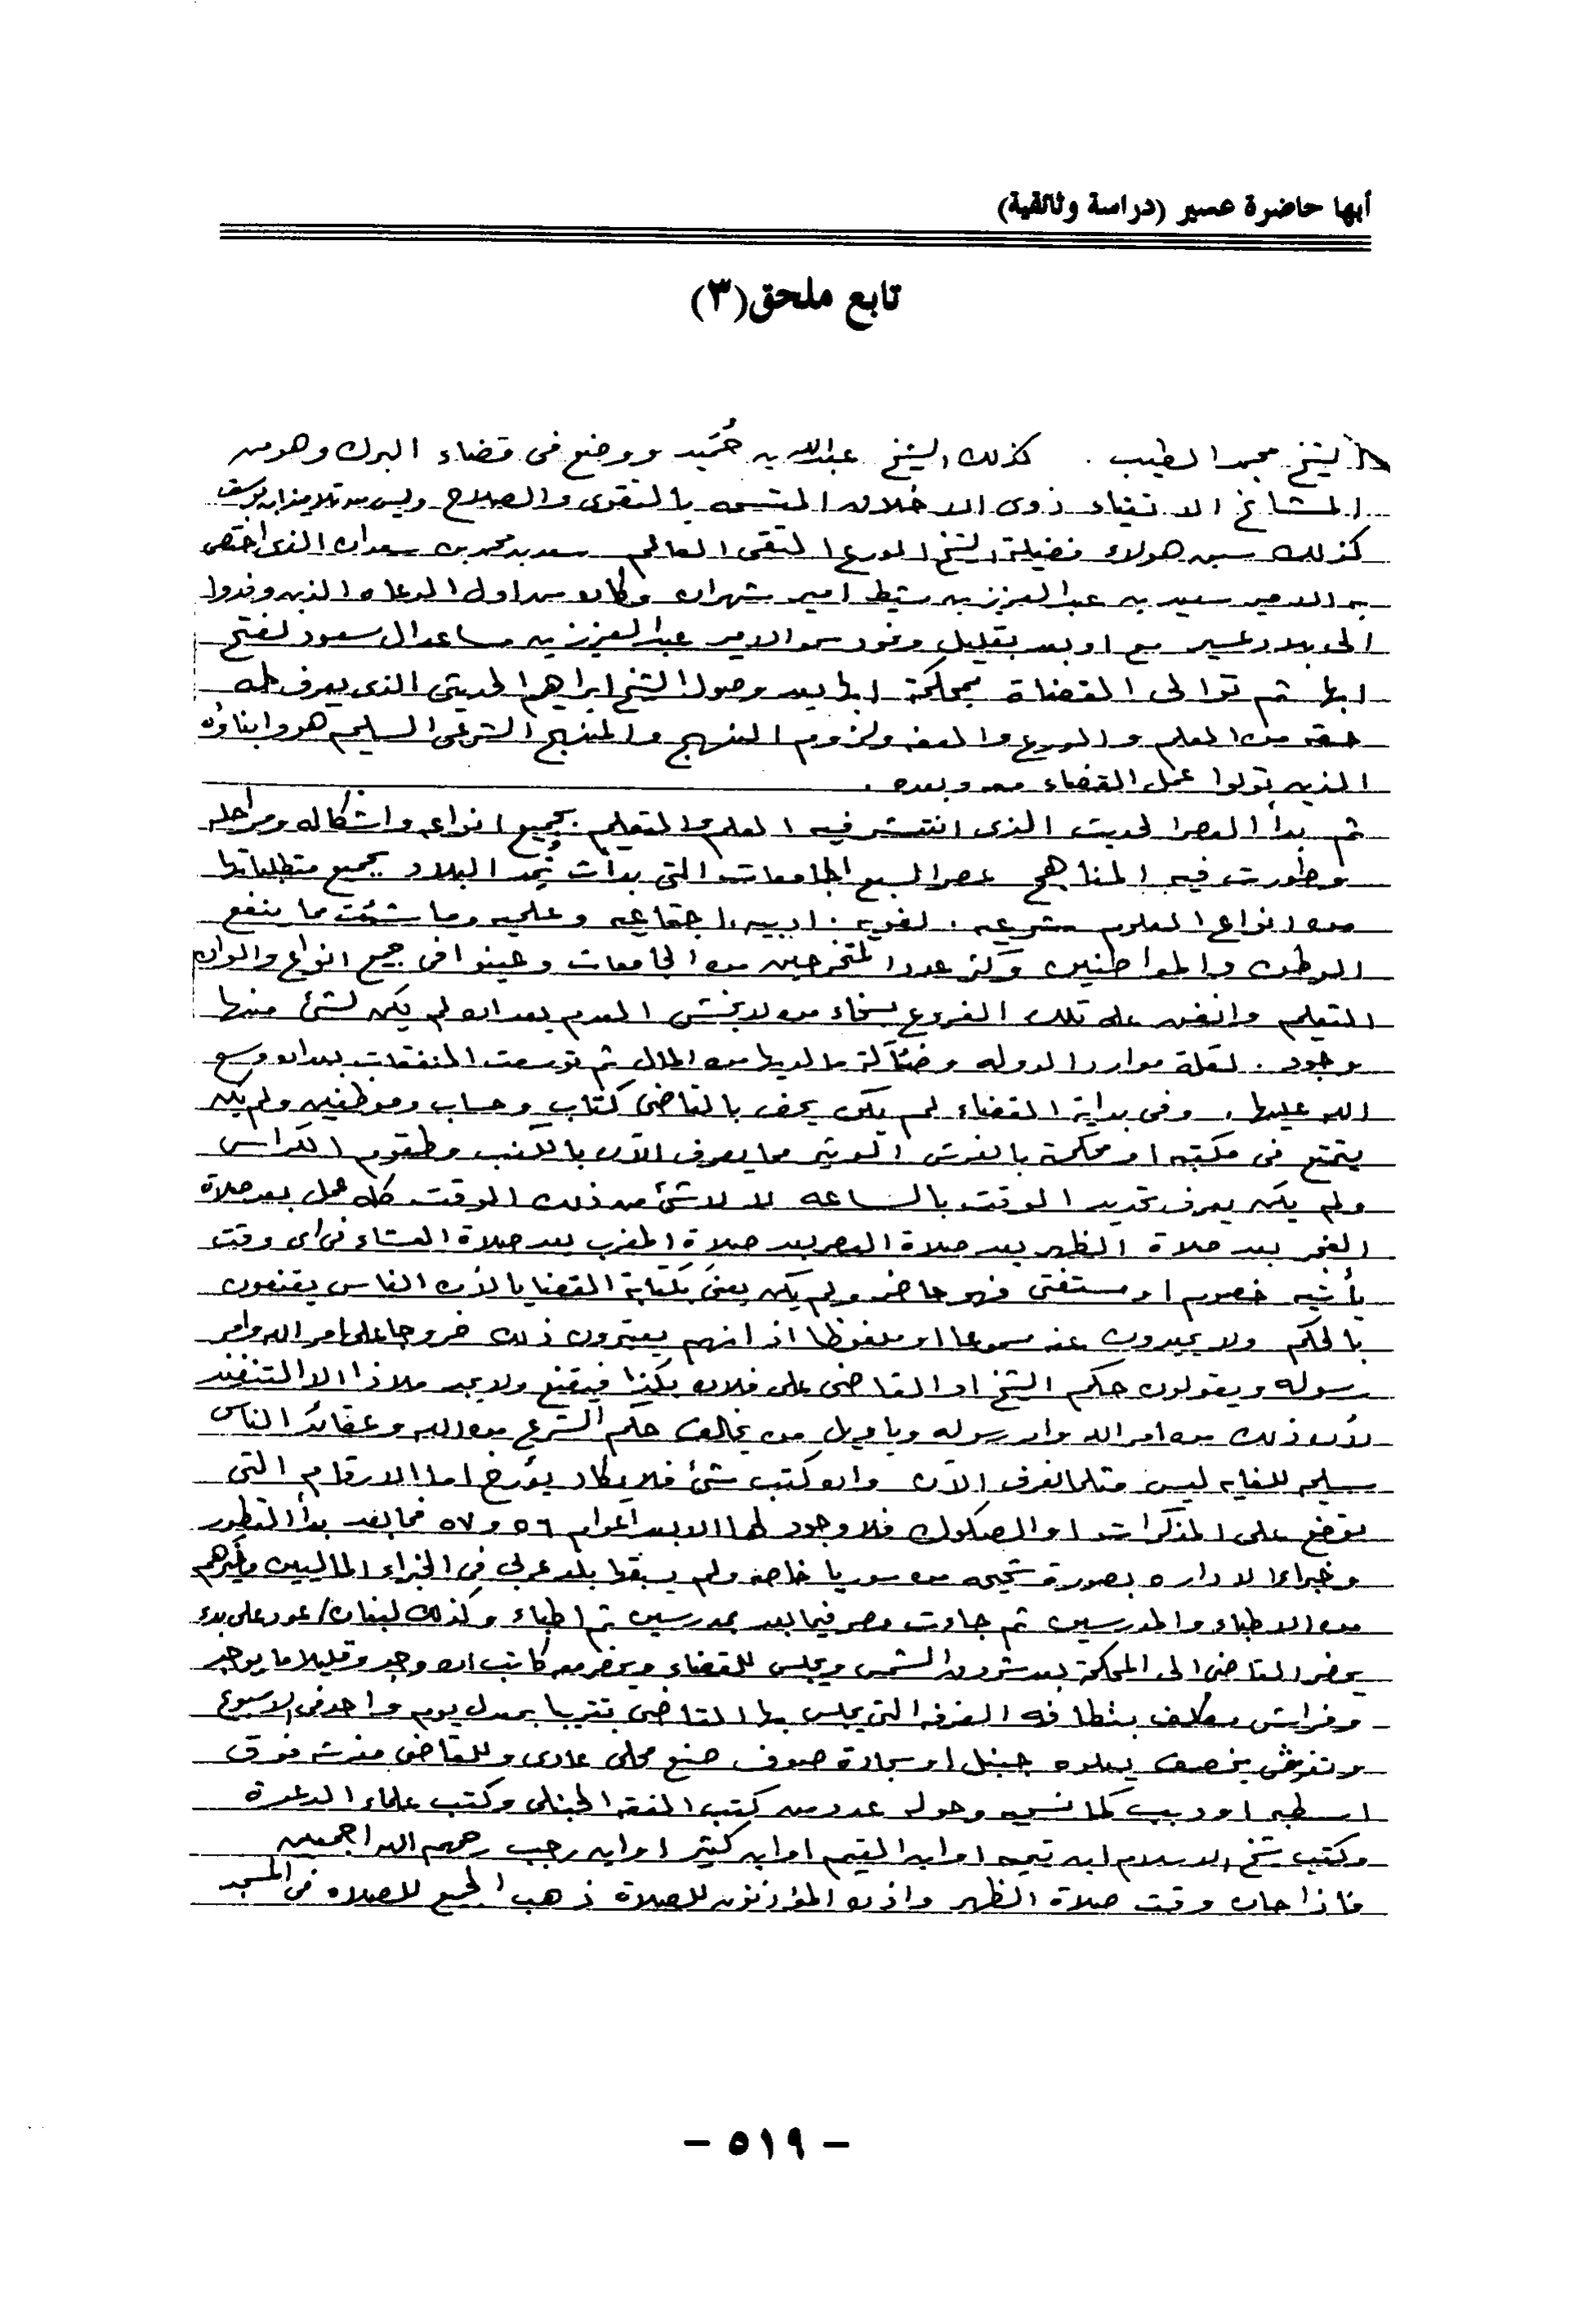 أبها حاضرة عسير (دراسة وثائقية)
تابع ملحق (٣)
الشيخ محمد الطيب . كذلك الشيخ عبدالله بن حُمَيد ووضع في قضاء البرك وهو من
المشائخ الاتقياء ذوى الاخلاق المتسمه بالتقوى والصلاح وليس من تلاميذ ابن يوسف
كذلك سبق هولاء فضيلة الشيخ الورع التقى العالم سعد بن محمد بن سعدان الذي اختص
به الامير سعيد بن عبدالعزيز بن مشيط امير شهران وكان من اول الدعاه الذين وفدوا
الى بلاد عسير مع او بعد بقليل وفود سمو الامير عبدالعزيز بن مساعد ال سعود لفتح
ابها ثم توالى القضاة بمحكمة ابها بعد وصول الشيخ ابراهيم الحديثي الذى يعرف له
حقه من العلم والورع والعفه ولزوم النهج والمنهج الشرعي السليم هو وابناؤه
الذين تولوا عمل القضاء معه وبعده .
ثم بدأ العصر الحديث الذى انتشر فيه العلم والتعليم بجميع انواعه واشكاله ومراحله
وطورت فيه المناهج عصر السبع الجامعات التى بدأت تُمِد البلاد بجميع متطلباتها
من انواع العلوم شرعيه . لغويه . ادبيه . اجتماعيه وعلميه وما شئت مما ينفع
الوطن والمواطنين وكثر عدد المتخرجين من الجامعات وعينوا في جميع انواع والوان
التعليم وانفق على تلك الفروع بسخاء من لا يخشى العدم بعد ان لم يكن لشئ منها
وجود . لقلة موارد الدوله وضآلة ما لديها من المال ثم توسعت المنفقات بعد ان وسع
الله عليها . وفى بداية القضاء لم يكن يحف بالقاضى كتاب وحساب وموظفين ولم يكن
يتمتع في مكتبه او محكمة بالفرش الوثير مما يعرف الآن بالكنب وطقوم الكراسى
ولم يكن يعرف تحديد الوقت بالساعه لا لا شئ من ذلك الوقت كله عمل بعد صلاة
الفجر بعد صلاة الظهر بعد صلاة العصر بعد صلاة المغرب بعد صلاة العشاء في اى وقت
يأتيه خصوم او مستفتى فهو حاضر ولم يكن يعنى بكتابة القضايا لأن الناس يقتنعون
بالحكم ولا يحيدون عنه مسموعا او ملفوظا اذ انهم يعتبرون ذلك خروجا على امر الله وامر
رسوله ويقولون حكم الشيخ او القاضى على فلان بكذا فيقتنع ولا يجد ملاذا الا التنفيذ
لأن ذلك من امر الله وامر رسوله وياويل من يخالف حكم الشرع من الله وعقائد الناس
سليمه للغايه ليس مثلما نعرف الآن وان كتب شئ فلا يكاد يؤرخ اما الارقام التى
توضع على المذكرات او الصكوك فلا وجود لها الا بعد اعوام ٥٦ و ٥٧ فما بعد بدأ التطور
وخبراء الاداره بصورة شحيحه من سوريا خاصه ولم يسبقها بلد عربي في الخبراء الماليين وغيرهم
من الاطباء والمدرسين ثم جاءت مصر فيما بعد بمدرسين ثم اطباء وكذلك لبنان / عود على بدء
يحضر القاضى الى المحكمة بعد شروق الشمس ويجلس للقضاء ويحضر معه كاتب ان وجد وقليلا ما يوجد
وفراش مكلف بنظافه الغرفه التى يجلس بها القاضى تقريبا بمعدل يوم واحد في الاسبوع
وتفرش بخصف يعلوه حنبل او سجادة صوف صنع محلى عادى وللقاضى مفرشه فوق
او دبب وحوله عدد من كتب الفقه الحنبلى وكتب علماء الدعوة
وكتب شيخ الاسلام ابن تيميه او ابن القيم او ابن كثير او ابن رجب رحمهم الله اجمعين
فاذا حان وقت صلاة الظهر واذن المؤذنون للصلاة ذهب الجميع للصلاه في المسجد
- ٥١٩ -